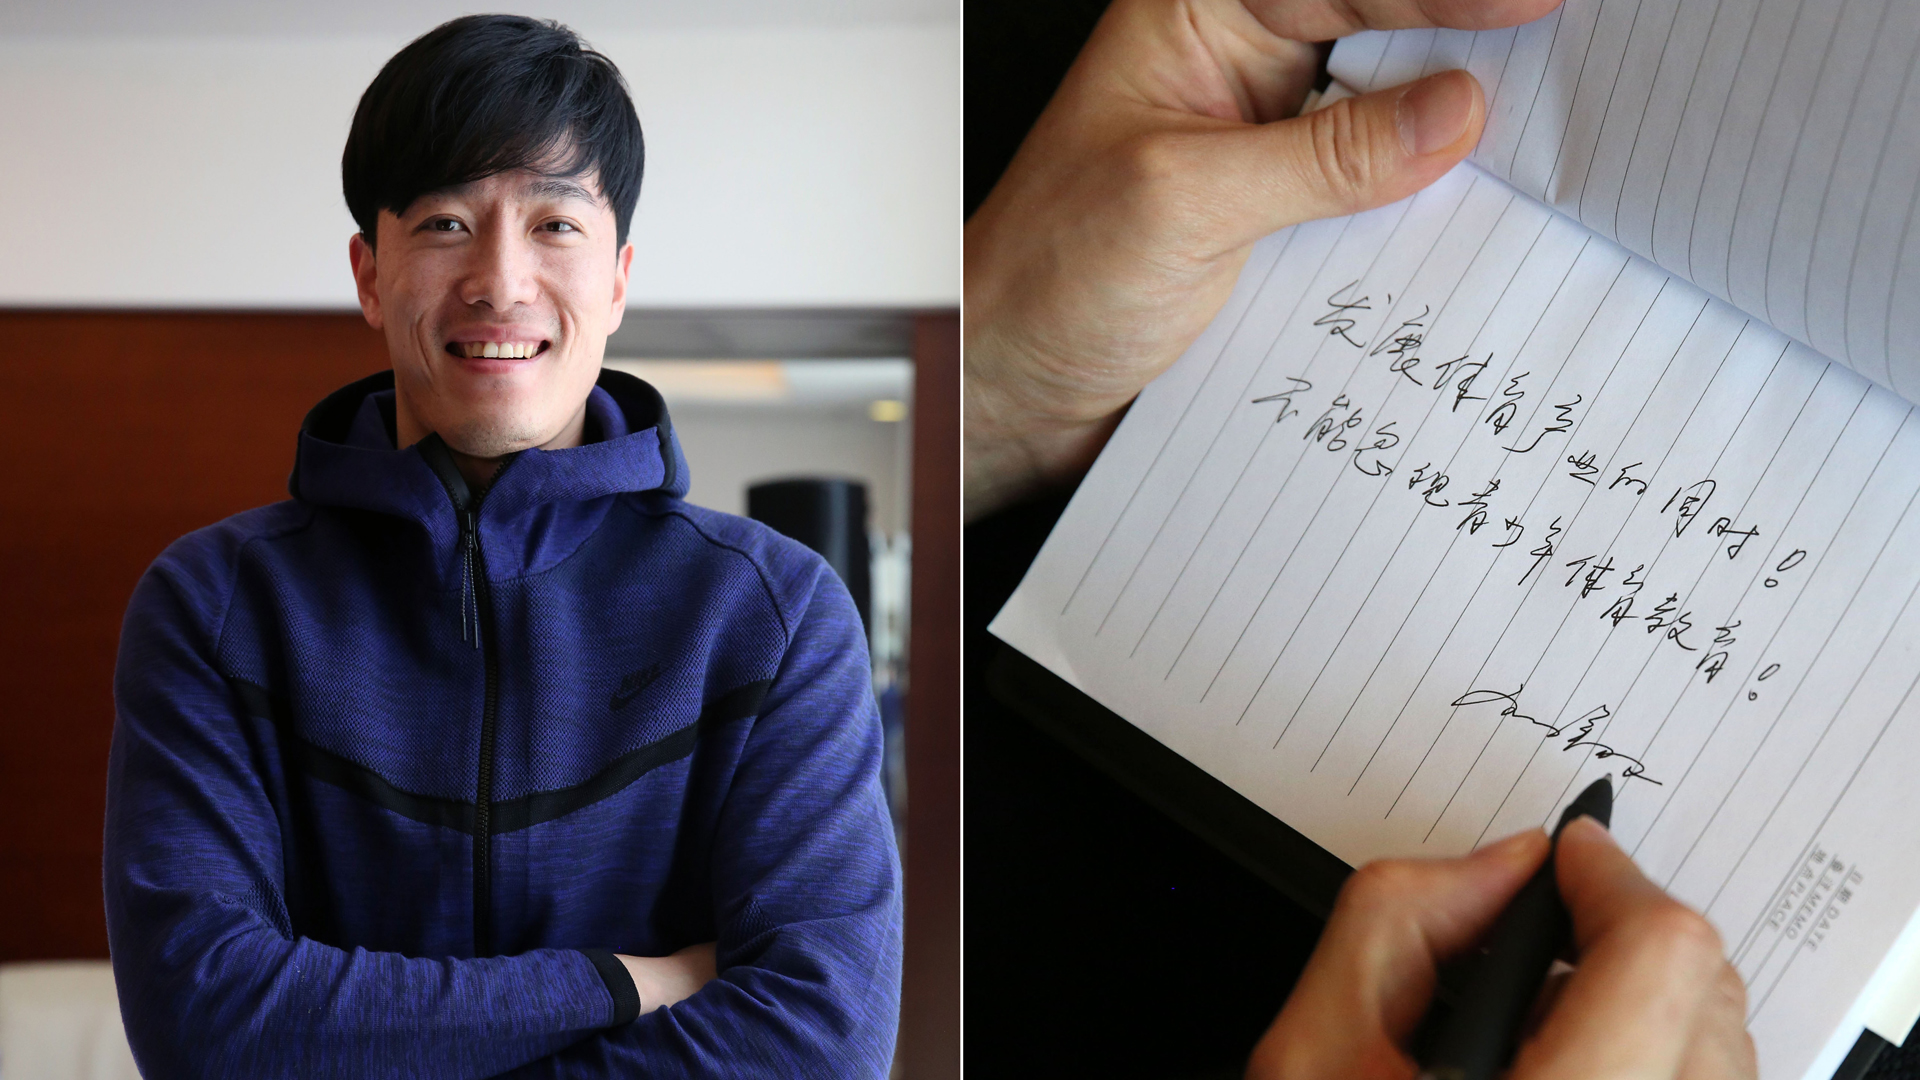 发展体育产业的同时！
不能忽视青少年体育教育！
日期 DATE
备注 MEMO
地点 PLACE
NIKE